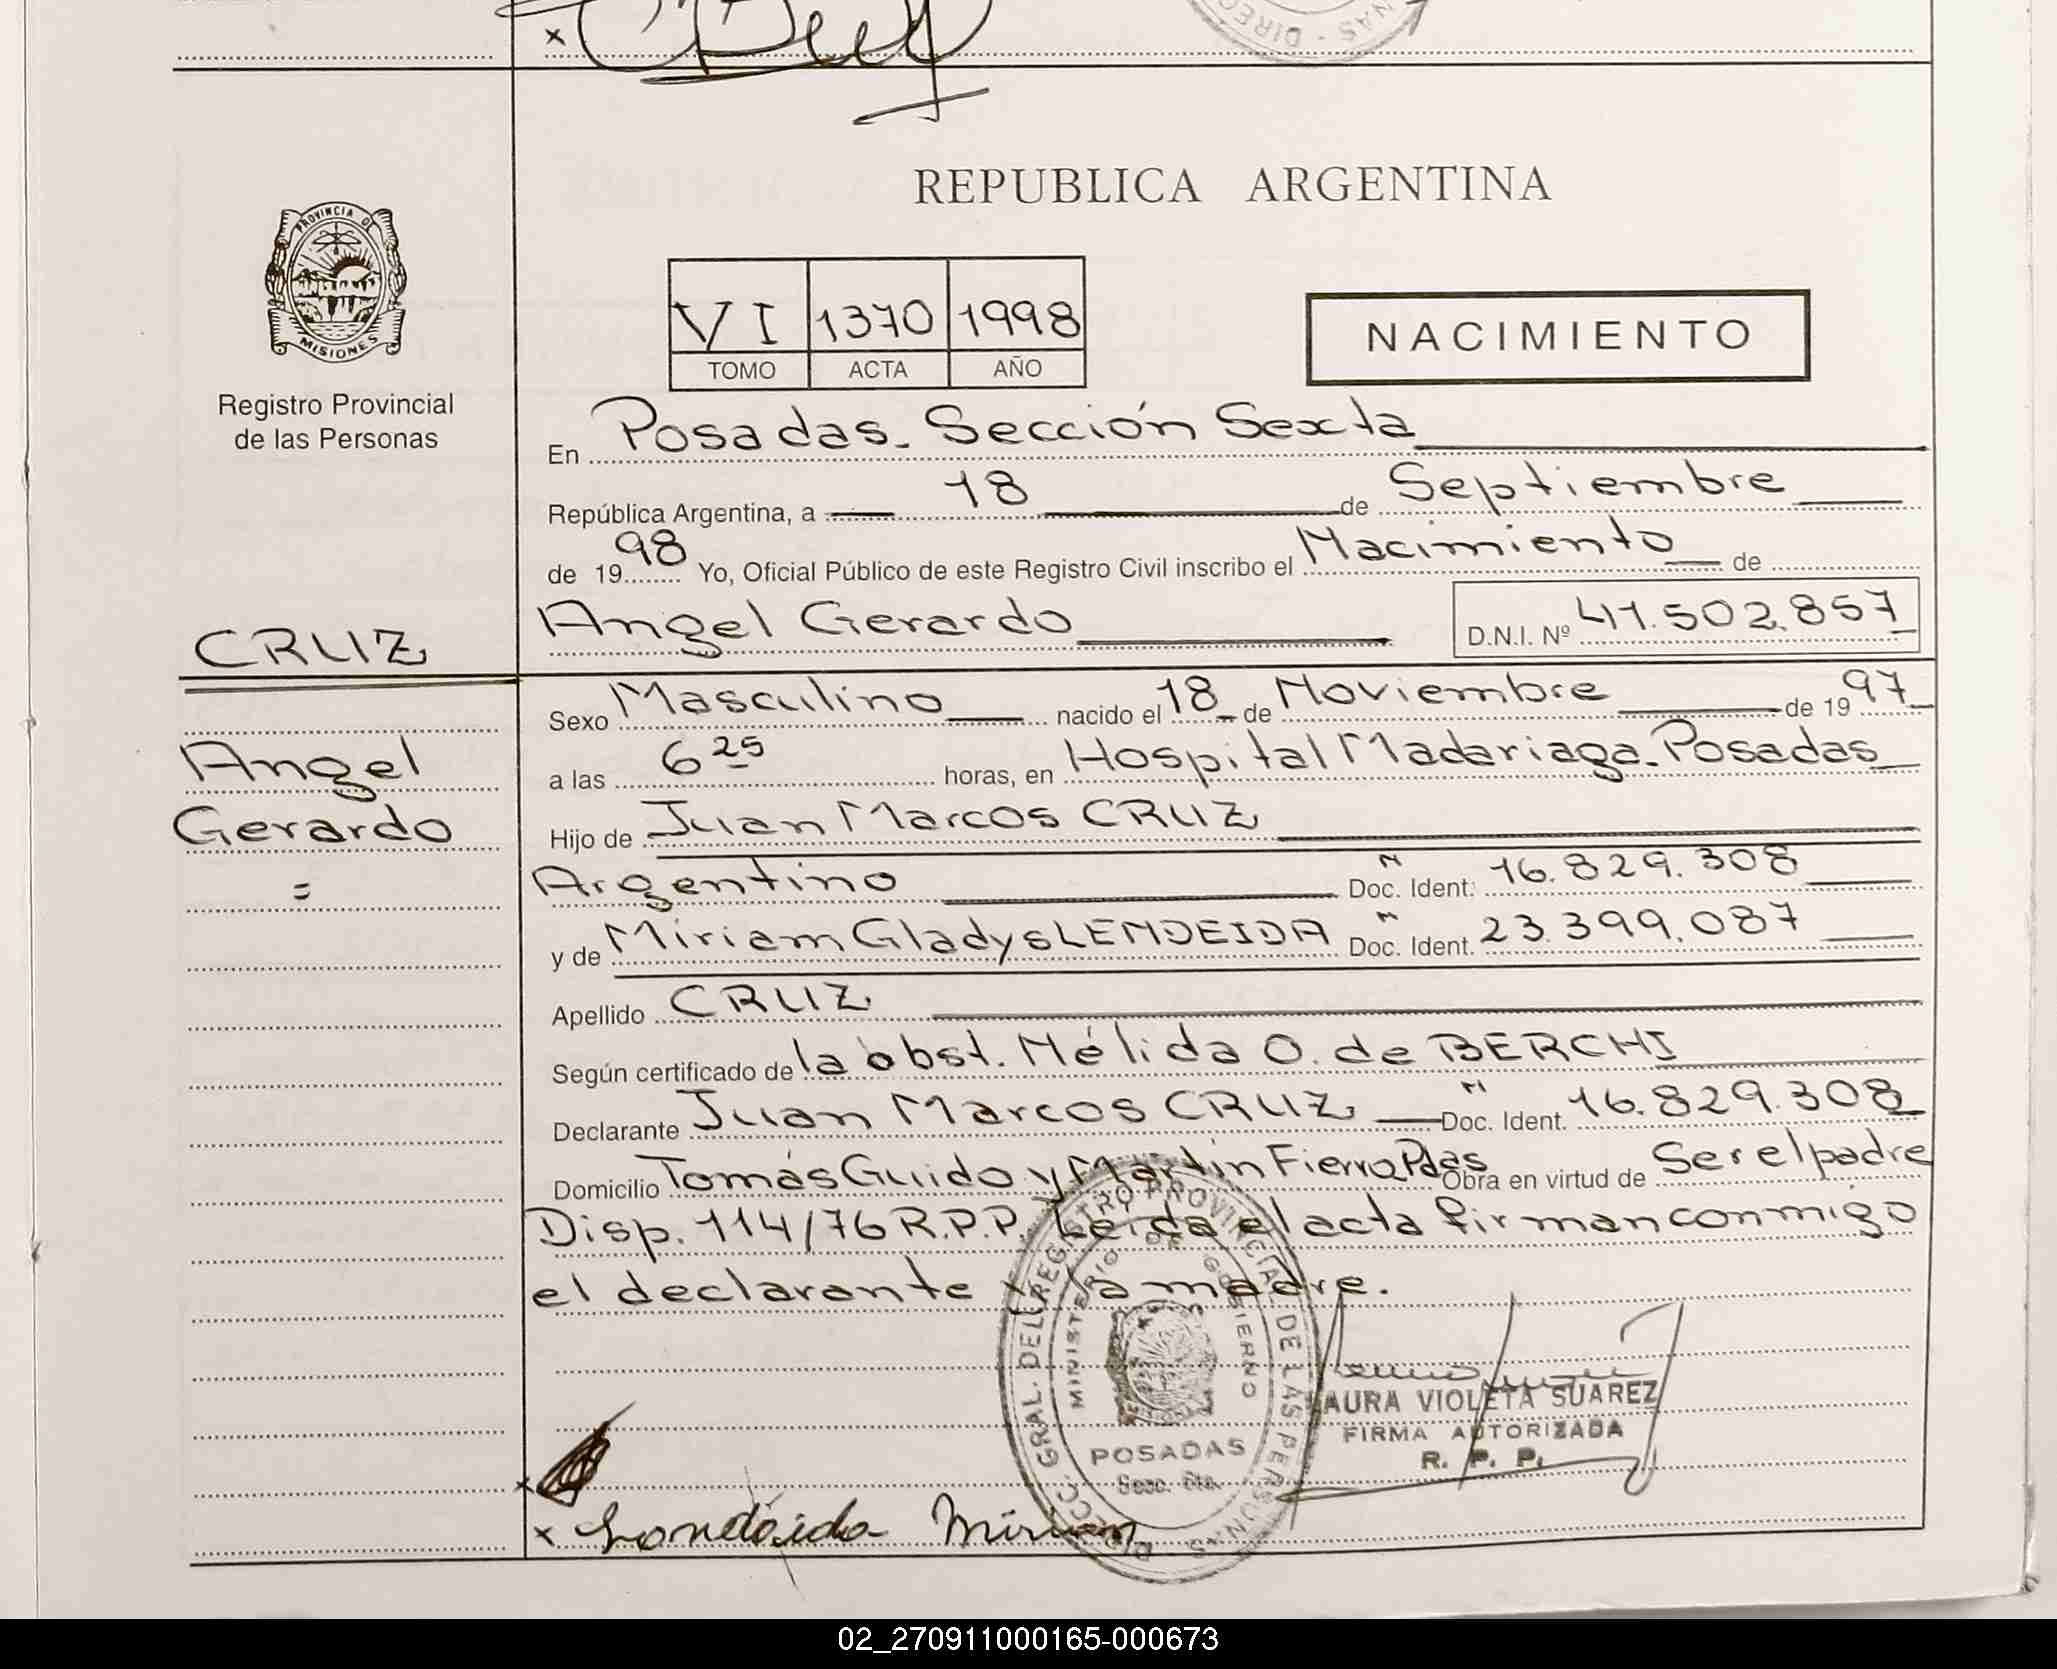 REPUBLICA ARGENTINA
PROVINCIA DE
MISIONES
Registro Provincial
de las Personas
VI 1370 1998
TOMO ACTA AÑO
NACIMIENTO
En Posadas. Sección Sexta
República Argentina, a 18 de Septiembre
de 19 98 Yo, Oficial Público de este Registro Civil inscribo el Nacimiento de
Angel Gerardo D.N.I. Nº 41.502.857
CRUZ
Angel
Gerardo
=
Sexo Masculino nacido el 18 de Noviembre de 19 97
a las 6 25 horas, en Hospital Madariaga. Posadas
Hijo de Juan Marcos CRUZ
Argentino Doc. Ident. N 16.829.308
y de Miriam Gladys LENDEIDA Doc. Ident. N 23.399.087
Apellido CRUZ
Según certificado de la obst. Nélida O. de BERCHI
Declarante Juan Marcos CRUZ Doc. Ident. N 16.829.308
Domicilio Tomás Guido y Martín Fierro Pdas Obra en virtud de Ser el padre
Disp. 114/76 R.P.P. Leida el acta firman conmigo
el declarante y la madre.
DIRECC. GRAL. DEL REGISTRO PROVINCIAL DE LAS PERSONAS
MINISTERIO DE GOBIERNO
POSADAS
Secc. 6ta.
AURA VIOLETA SUAREZ
FIRMA AUTORIZADA
R. P. P.
x
x Londeida Miriam
02_270911000165-000673